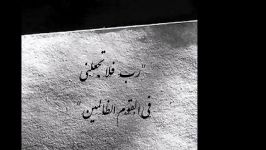 "رب فلا تجعلنى
فى القوم الظالمين"